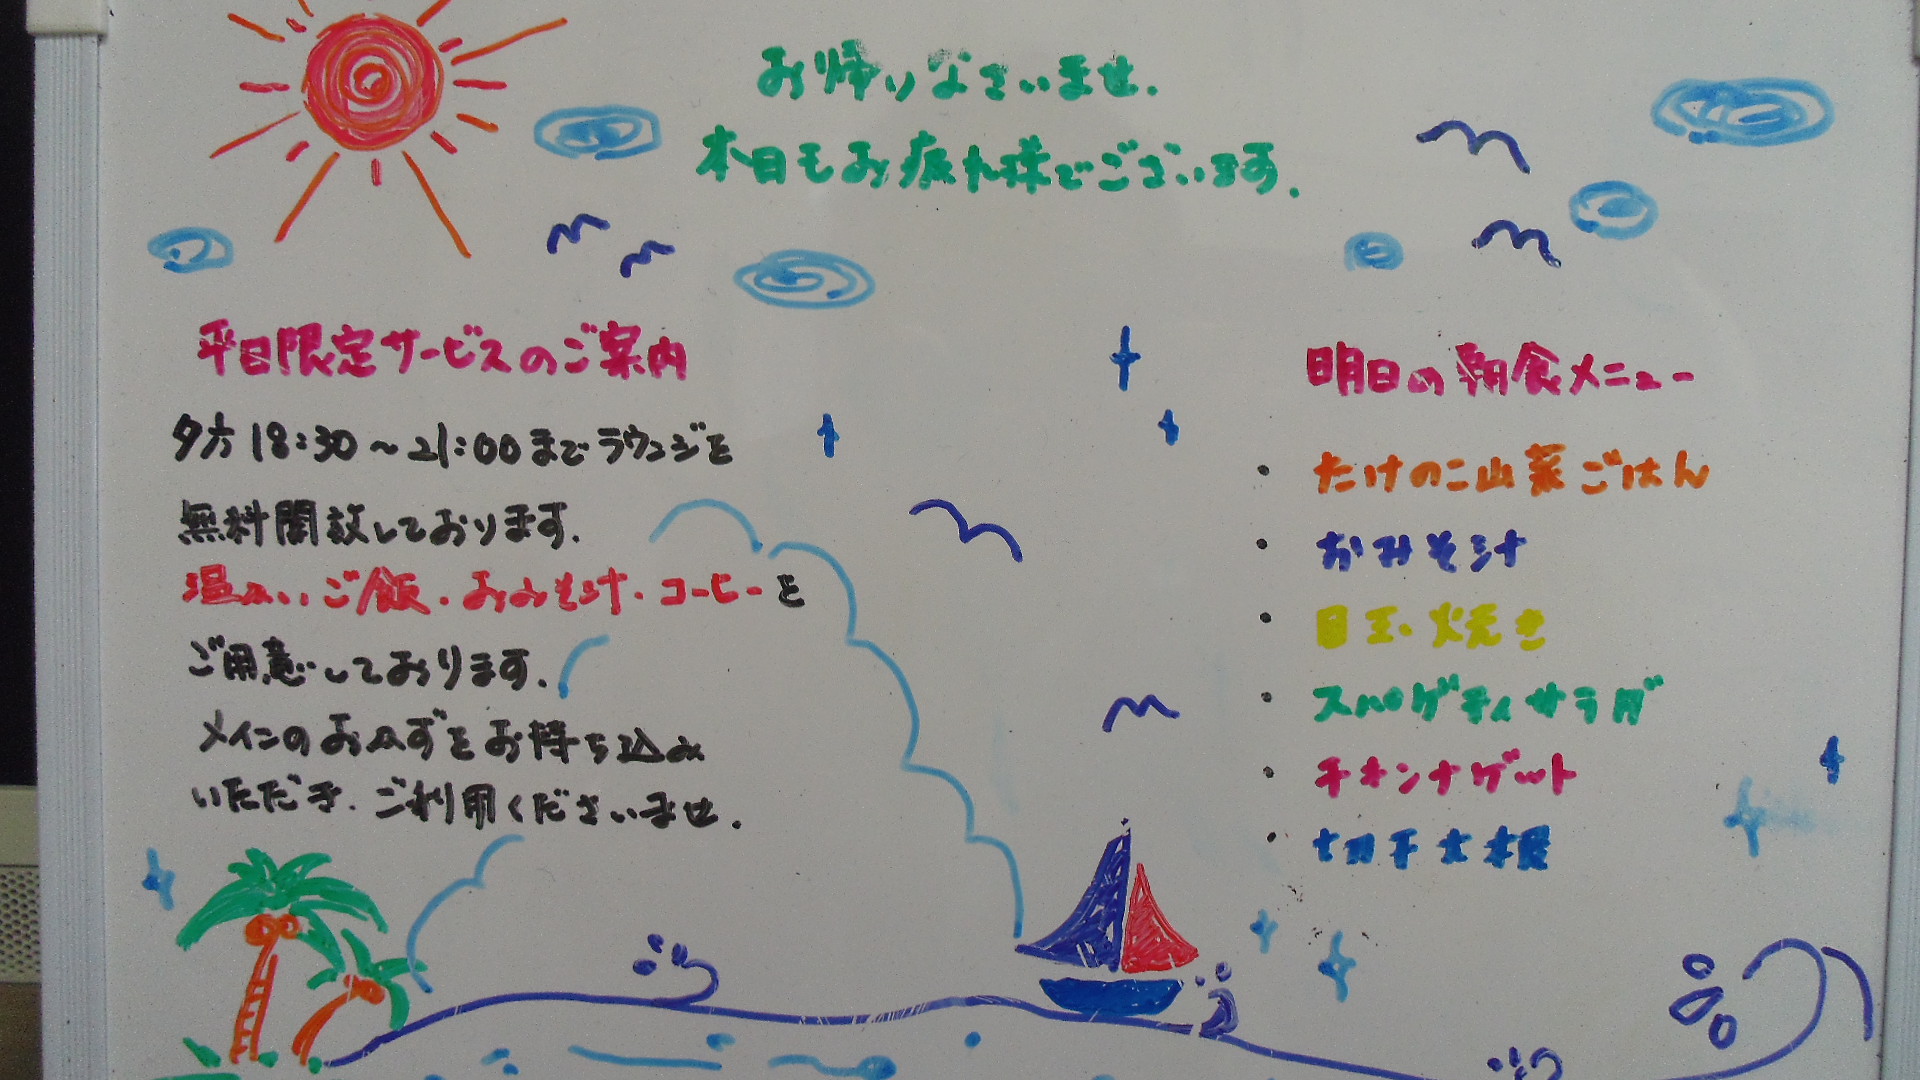 お帰りなさいませ.
本日もお疲れ様でございます.
平日限定サービスのご案内
夕方18:30～21:00までラウンジを
無料開放しております.
温かいご飯・おみそ汁・コーヒーを
ご用意しております.
メインのおかずをお持ち込み
いただき.ご利用くださいませ.
明日の朝食メニュー
・たけのこ山菜ごはん
・おみそ汁
・目玉焼き
・スパゲティサラダ
・チキンナゲット
・切干大根